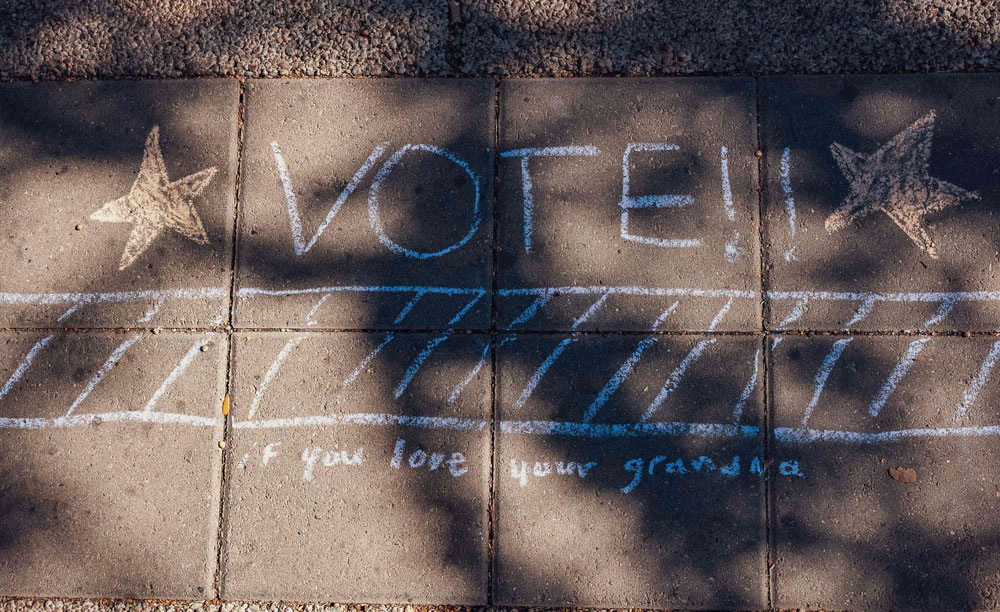 VOTE!!
if you love your grandma